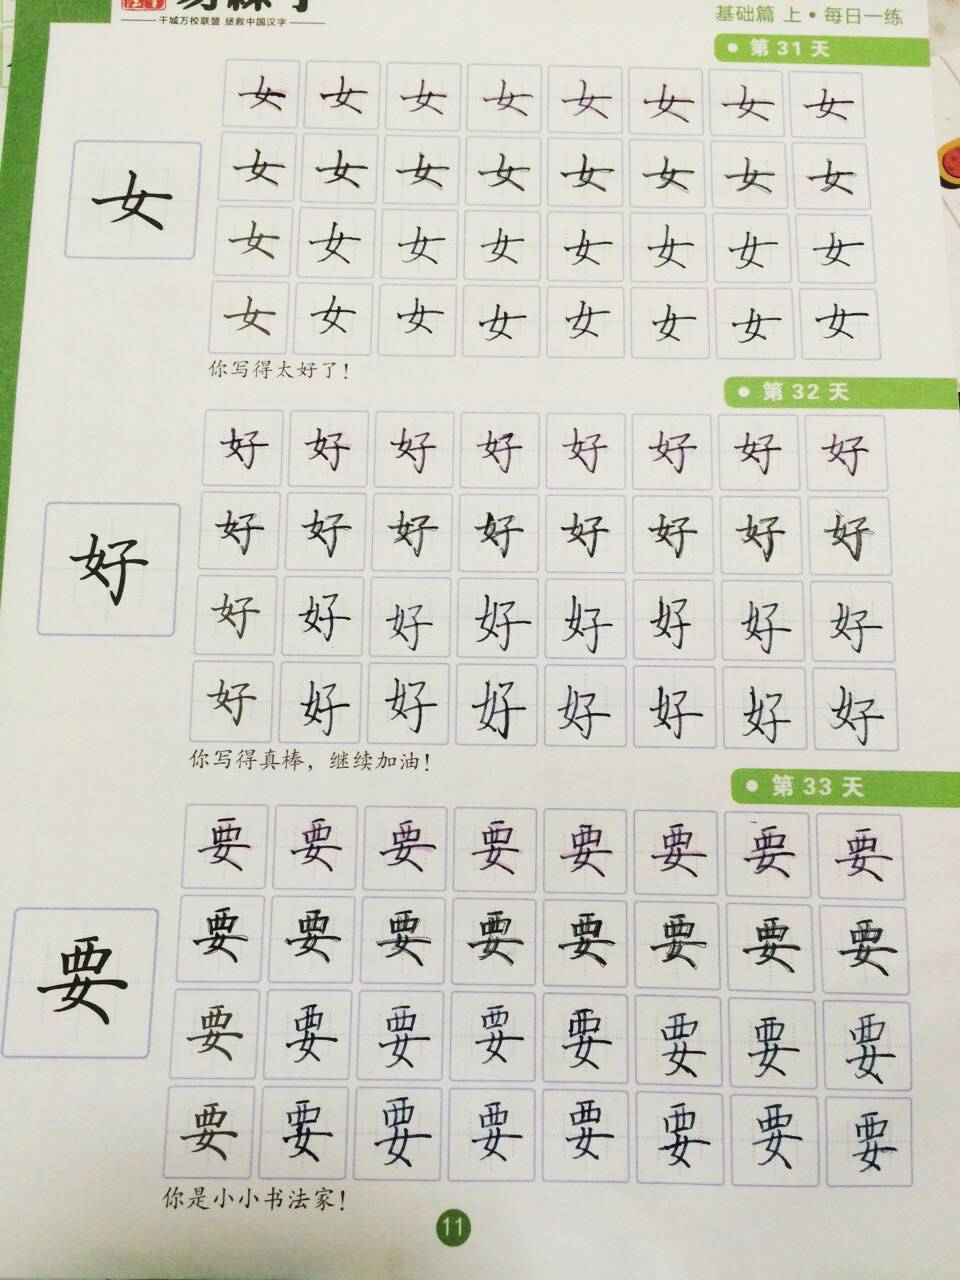 千城万校联盟 拯救中国汉字
基础篇 上·每日一练
第31天
女
女 女 女 女 女 女 女 女
女 女 女 女 女 女 女 女
女 女 女 女 女 女 女 女
女 女 女 女 女 女 女 女
你写得太好了!
第32天
好
好 好 好 好 好 好 好 好
好 好 好 好 好 好 好 好
好 好 好 好 好 好 好 好
好 好 好 好 好 好 好 好
你写得真棒，继续加油!
第33天
要
要 要 要 要 要 要 要 要
要 要 要 要 要 要 要 要
要 要 要 要 要 要 要 要
要 要 要 要 要 要 要 要
你是小小书法家!
11